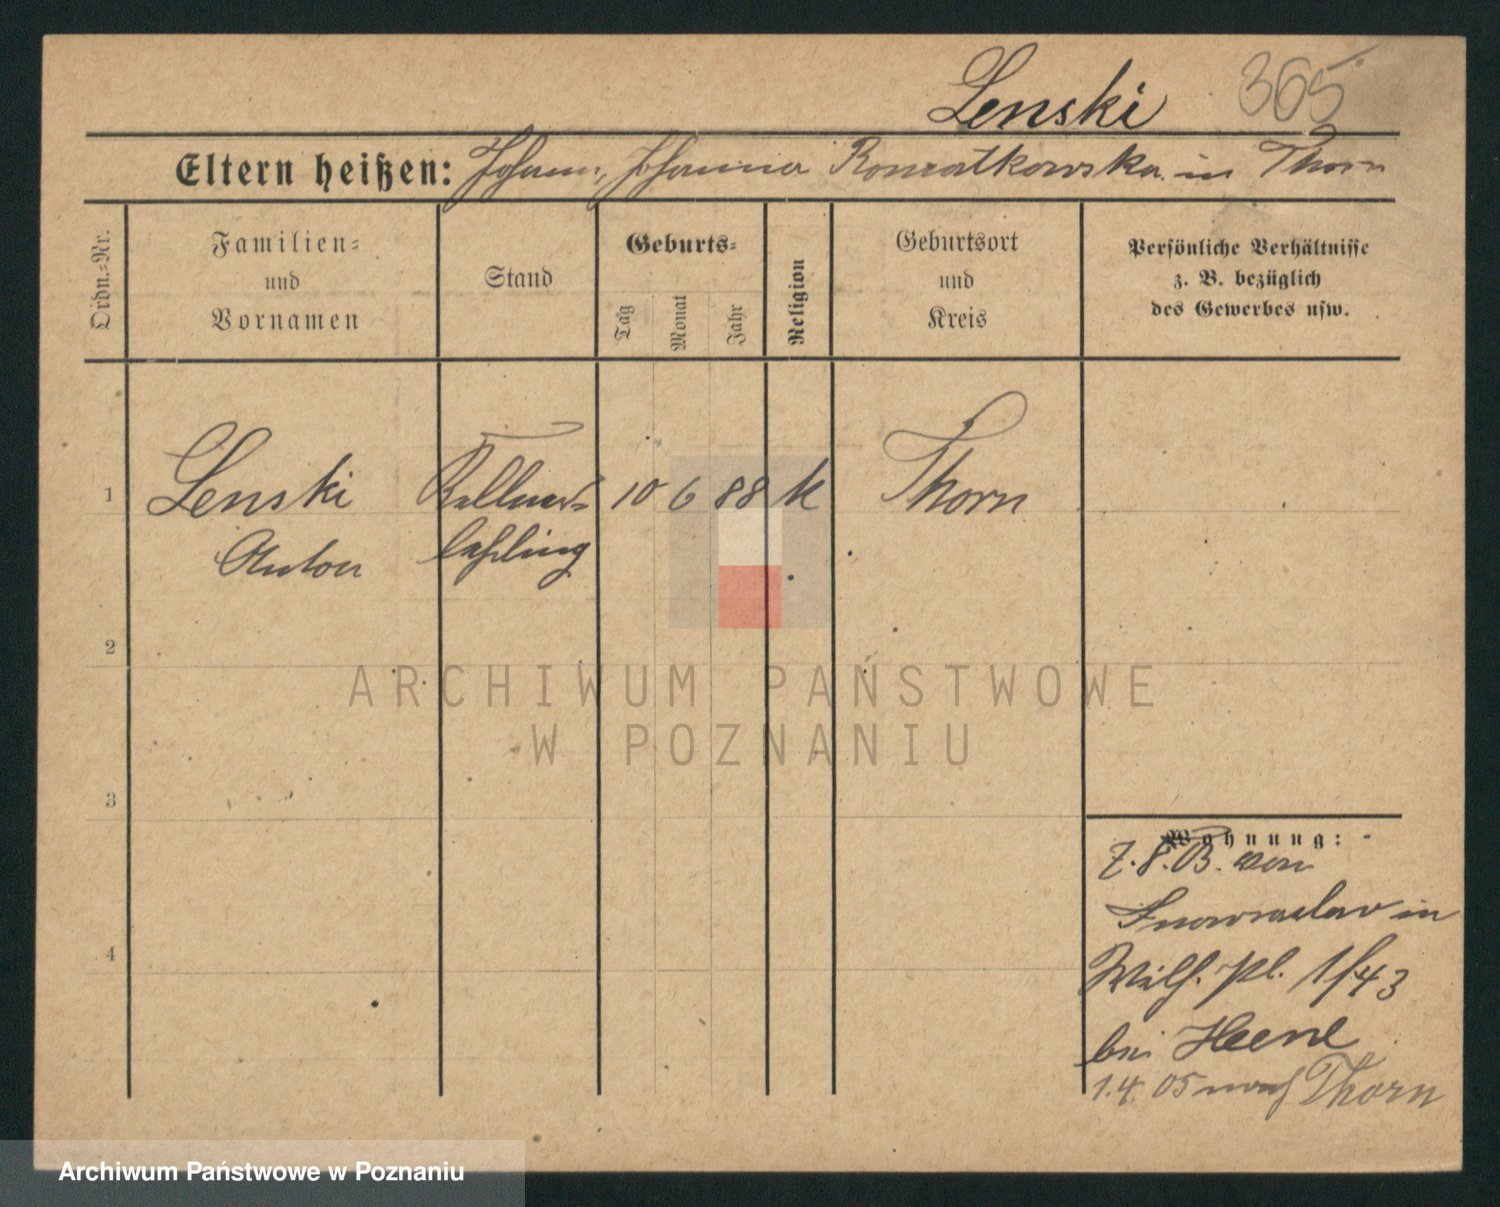 Lenski 365
Eltern heißen: Johann, Johanna in Thorn
Ordn.-Nr.
Familien-
und
Vornamen
Stand
Geburts-
Tag
Monat
Jahr
Religion
Geburtsort
und
Kreis
Persönliche Verhältnisse
z. B. bezüglich
des Gewerbes usw.
1 Lenski Kellner- 10 6 88 k Thorn
Anton lehling
2
3
4
Wohnung:
7.8.03. von
Inowraclaw in
Wilh. pl. 1/43
bei
1.4.05 nach Thorn
ARCHIWUM PAŃSTWOWE
W POZNANIU
Archiwum Państwowe w Poznaniu